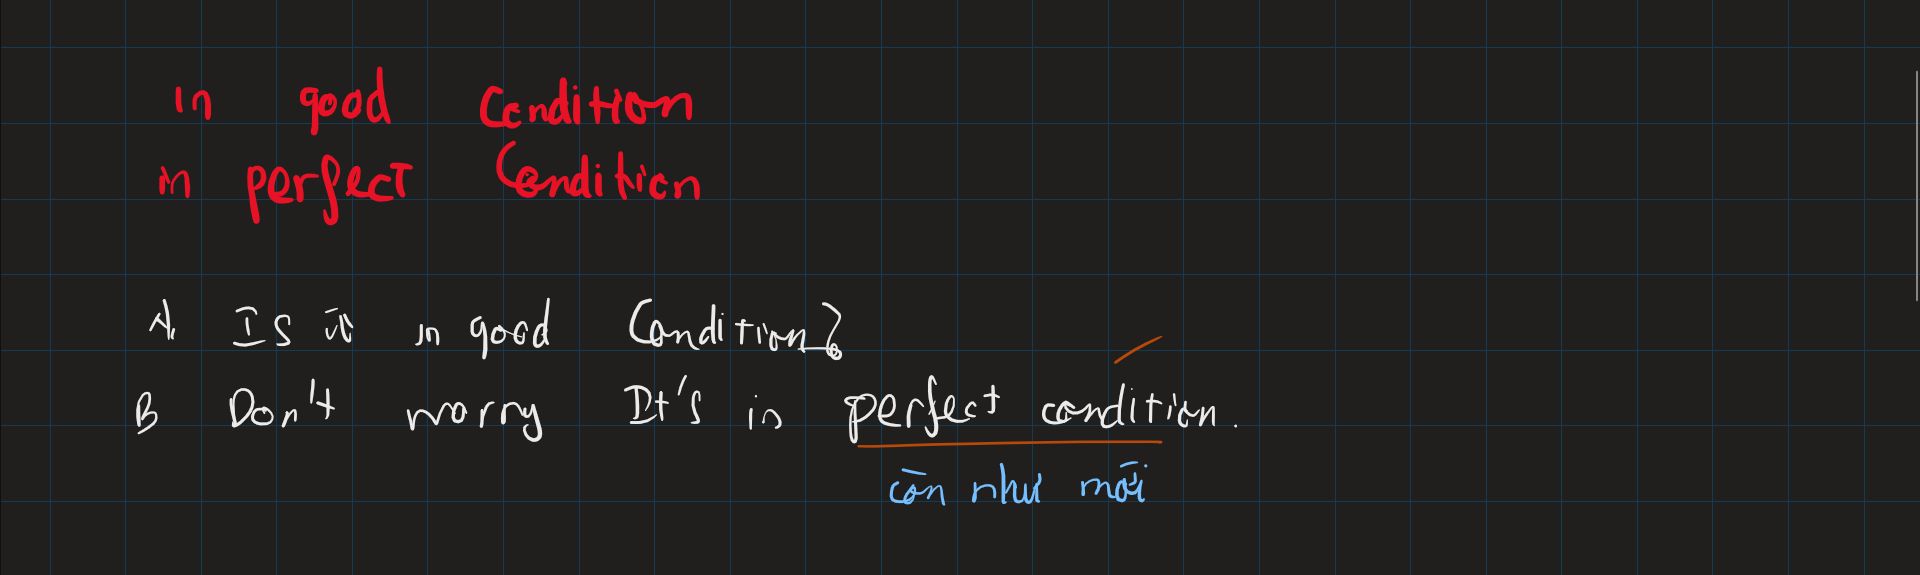 in good condition
in perfect condition
A. Is it in good condition?
B Don't worry It's in perfect condition.
còn như mới